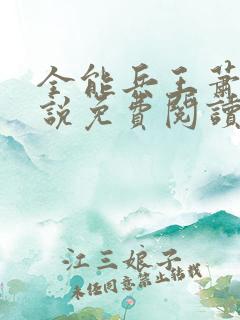 全能兵王蕭
說免費閱讀
江三娘子
未任同意禁止轉載